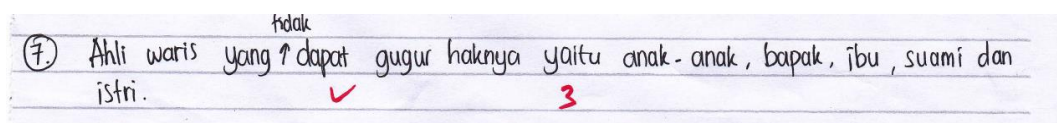 tidak
7. Ahli waris yang ↑ dapat gugur haknya yaitu anak-anak, bapak, ibu, suami dan
istri.
✓ 3